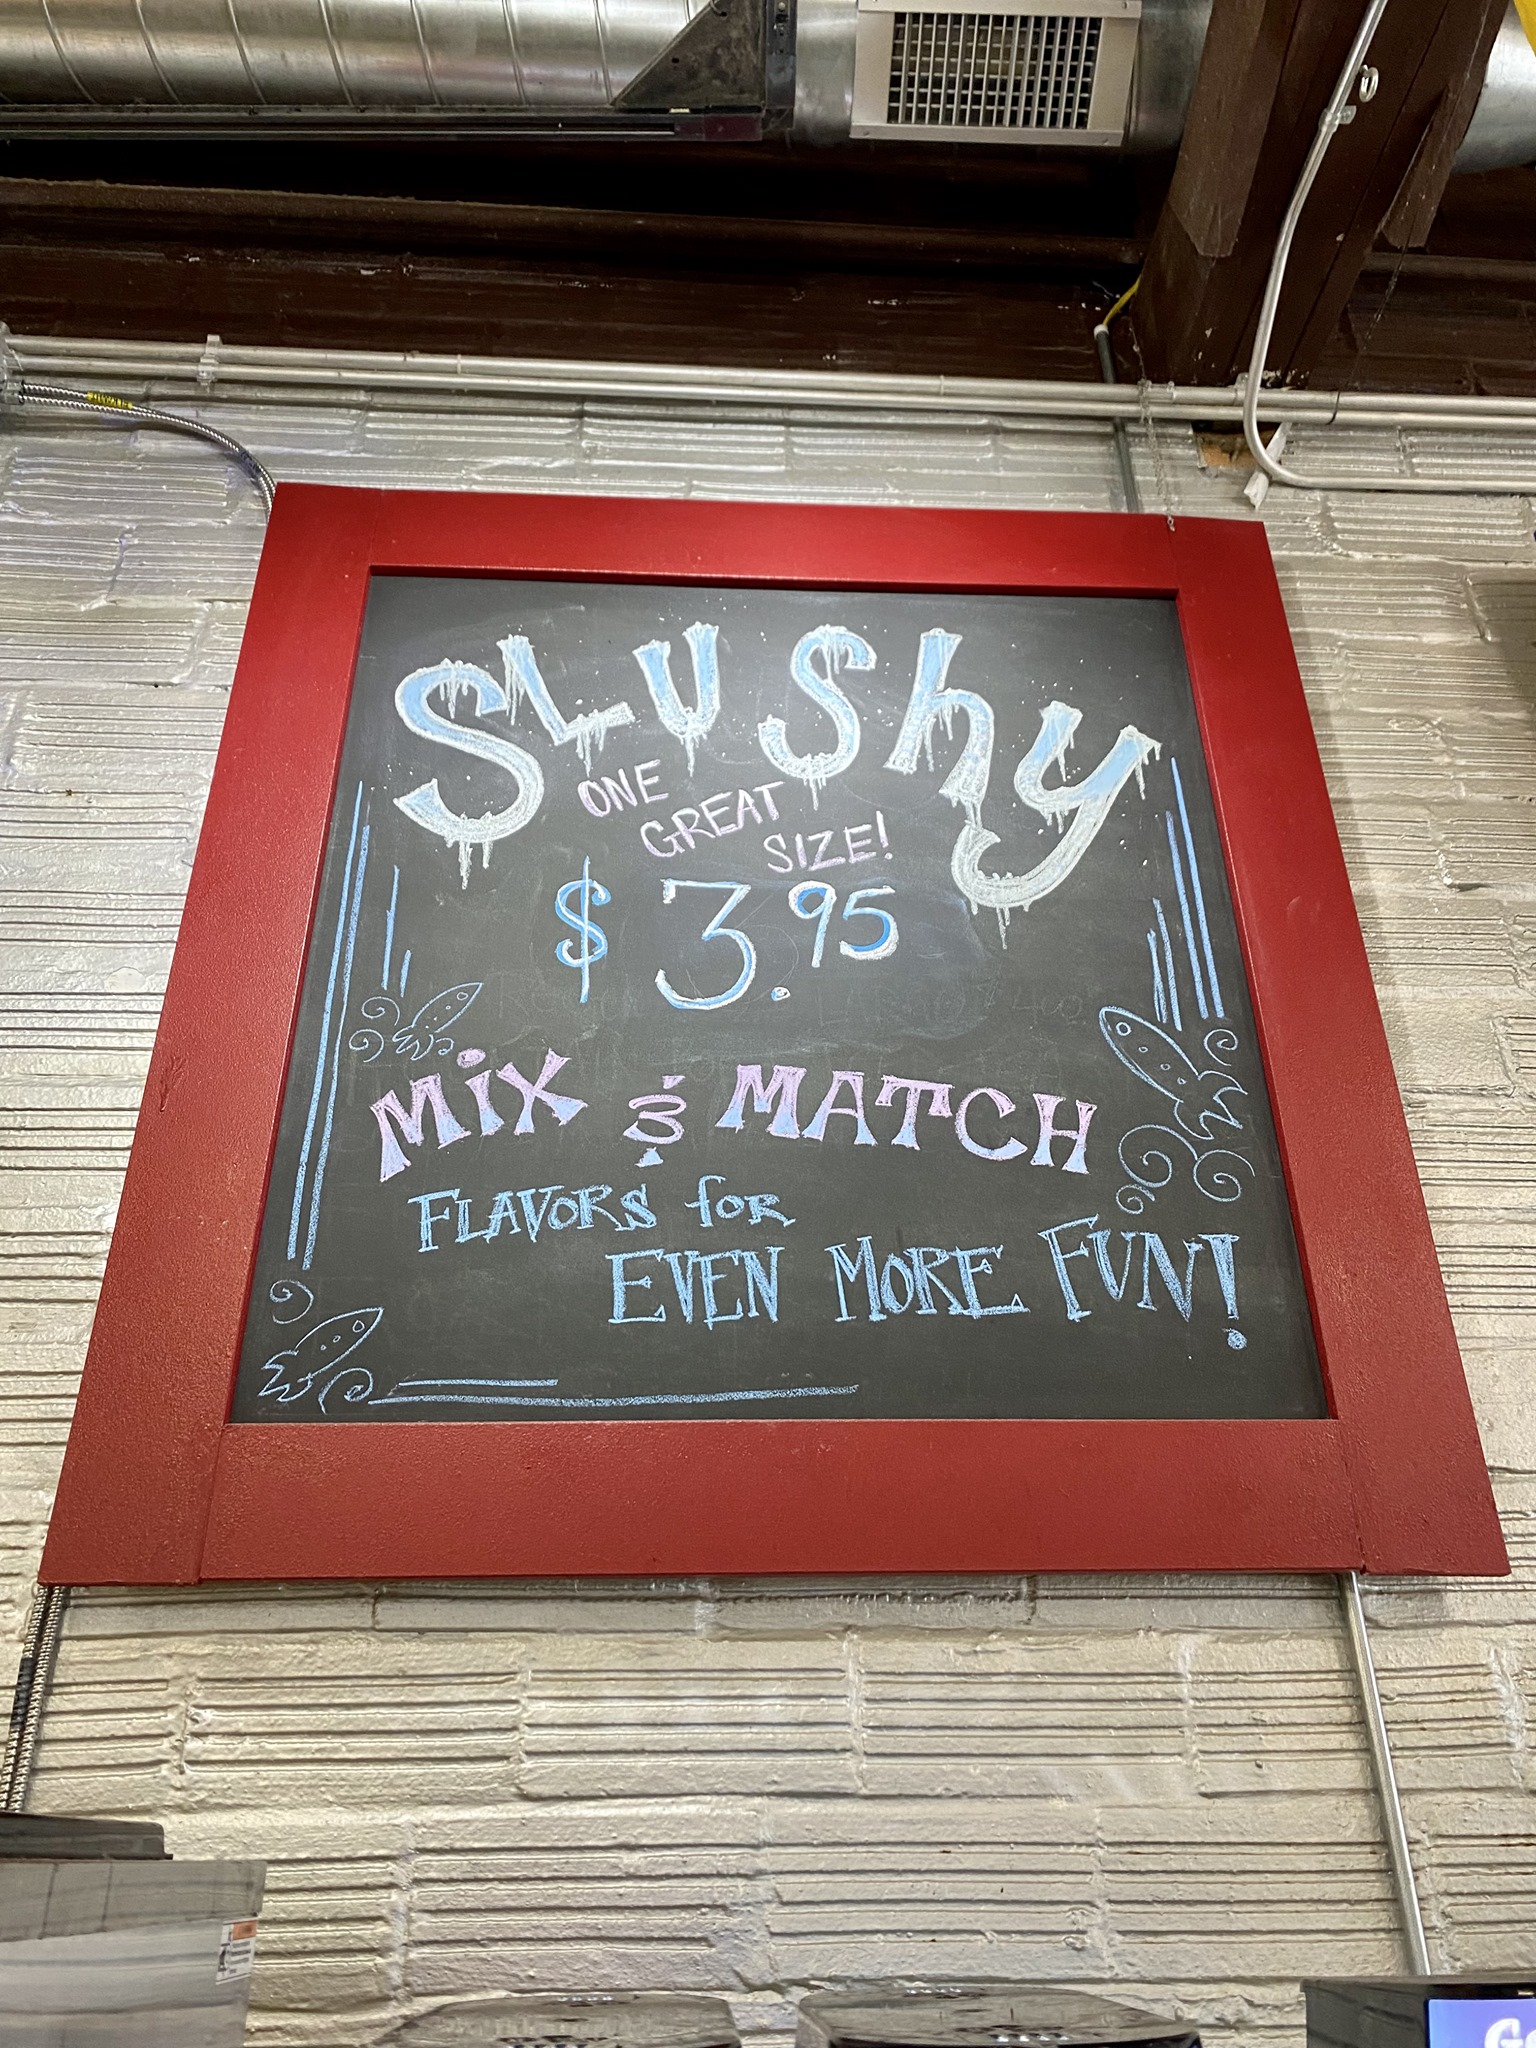 SLUShy
ONE
GREAT
SIZE!
$ 3.95
MiX & MATCH
FLAVORS for
EVEN MORE FUN!